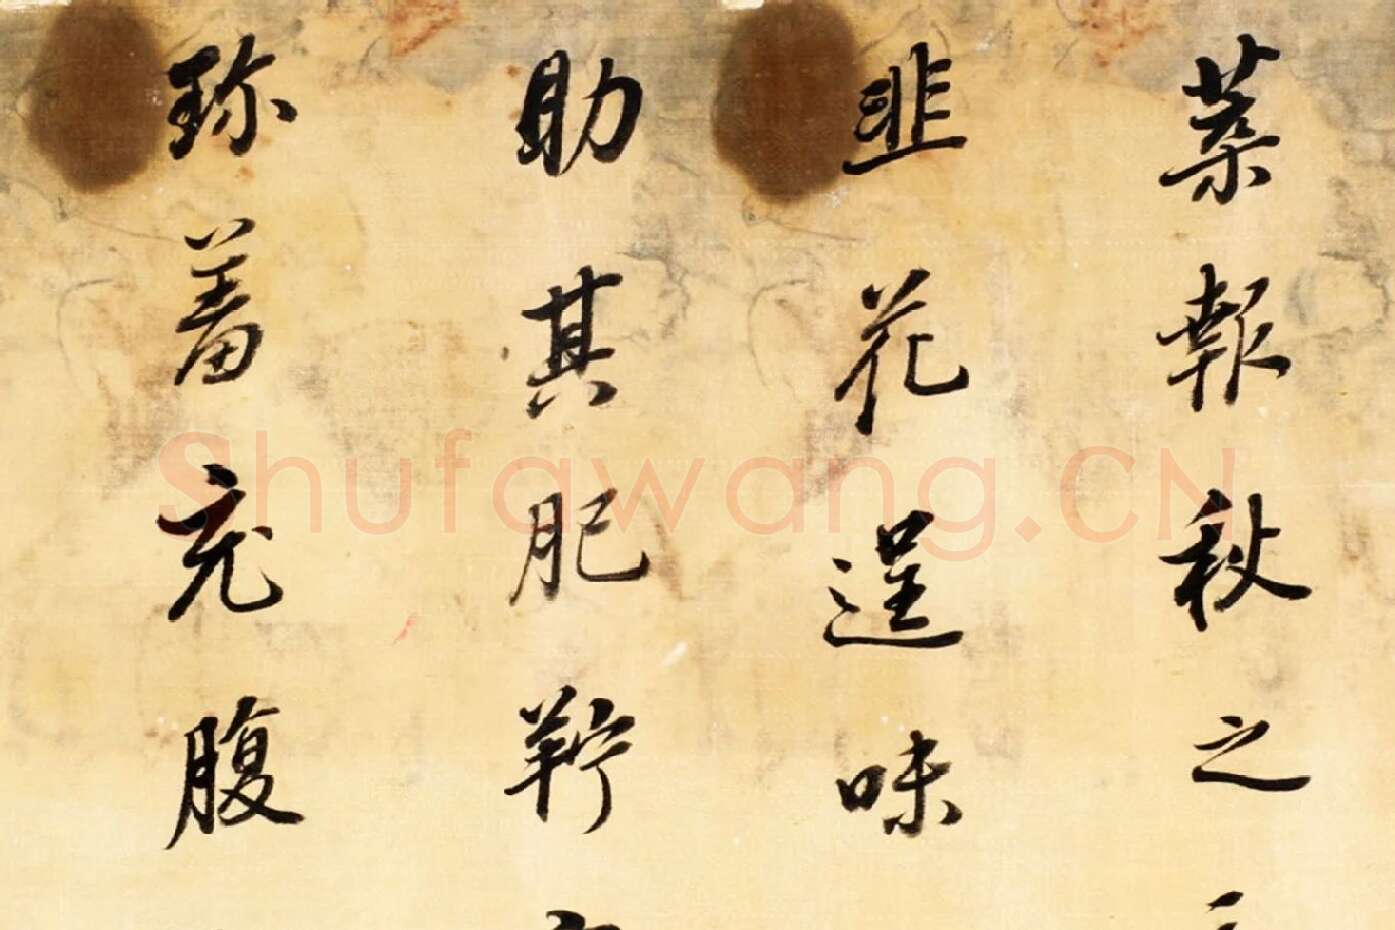 葉報秋之
韭花逞味
助其肥羜
珎羞充腹
Shufawang.CN